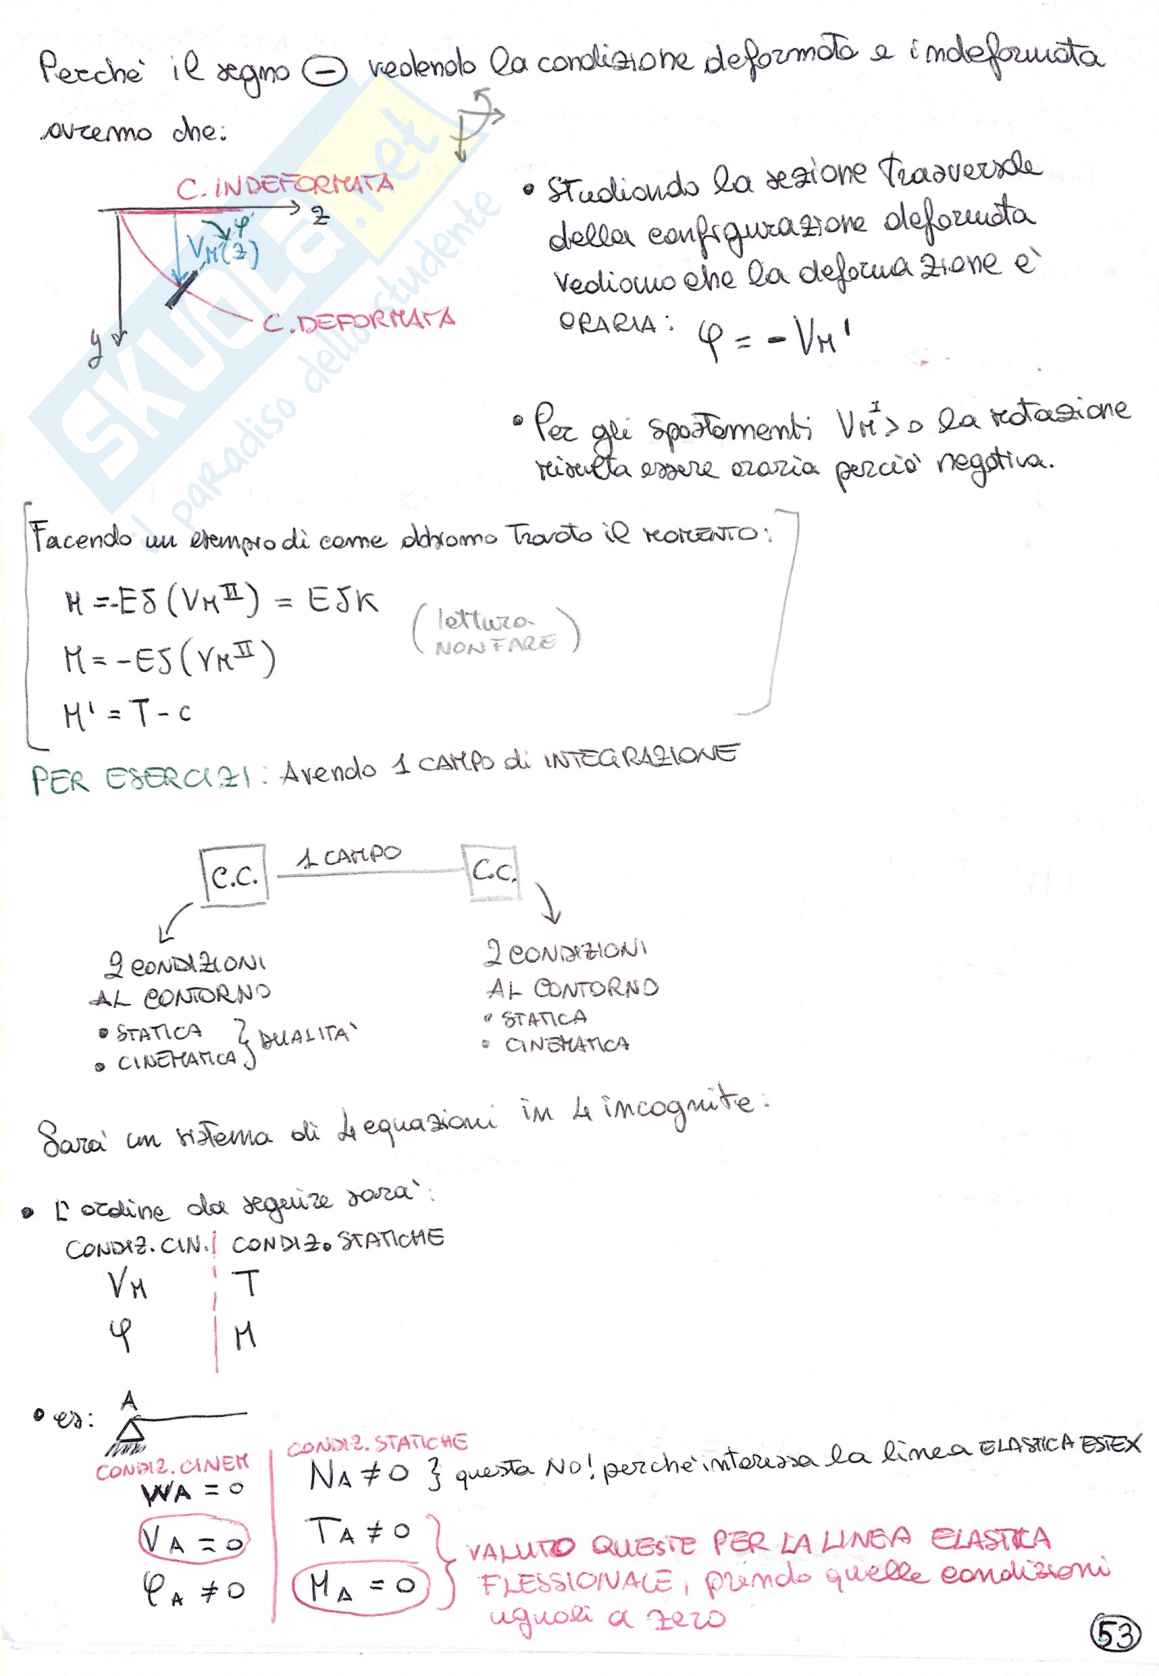 Perchè il segno ⊖ vedendo la condizione deformata e indeformata
avremo che:
C. INDEFORMATA
z
φ
VM(z)
C. DEFORMATA
y
• Studiando la sezione trasversale
della configurazione deformata
vediamo che la deformazione è
ORARIA: φ = - VM'
• Per gli spostamenti VM^I > 0 la rotazione
risulta essere oraria perciò negativa.
Facendo un esempio di come abbiamo trovato il MOMENTO:
M = -EJ (VM^II) = EJK
(lettura NON FARE)
M = -EJ (VM^II)
M' = T - c
PER ESERCIZI: Avendo 1 CAMPO di INTEGRAZIONE
C.C. 1 CAMPO C.C.
2 CONDIZIONI
AL CONTORNO
• STATICA
• CINEMATICA
} DUALITA'
2 CONDIZIONI
AL CONTORNO
• STATICA
• CINEMATICA
Sarà un sistema di 4 equazioni in 4 incognite:
• L'ordine da seguire sarà:
CONDIZ. CIN. | CONDIZ. STATICHE
VM | T
φ | M
• es: A
CONDIZ. CINEM
WA = 0
VA = 0
φA ≠ 0
CONDIZ. STATICHE
NA ≠ 0 } questa NO! perchè interessa la linea ELASTICA ESTEX
TA ≠ 0
MA = 0
VALUTO QUESTE PER LA LINEA ELASTICA
FLESSIONALE, prendo quelle condizioni
uguali a zero
53
SKUOLA.net
il paradiso dello studente